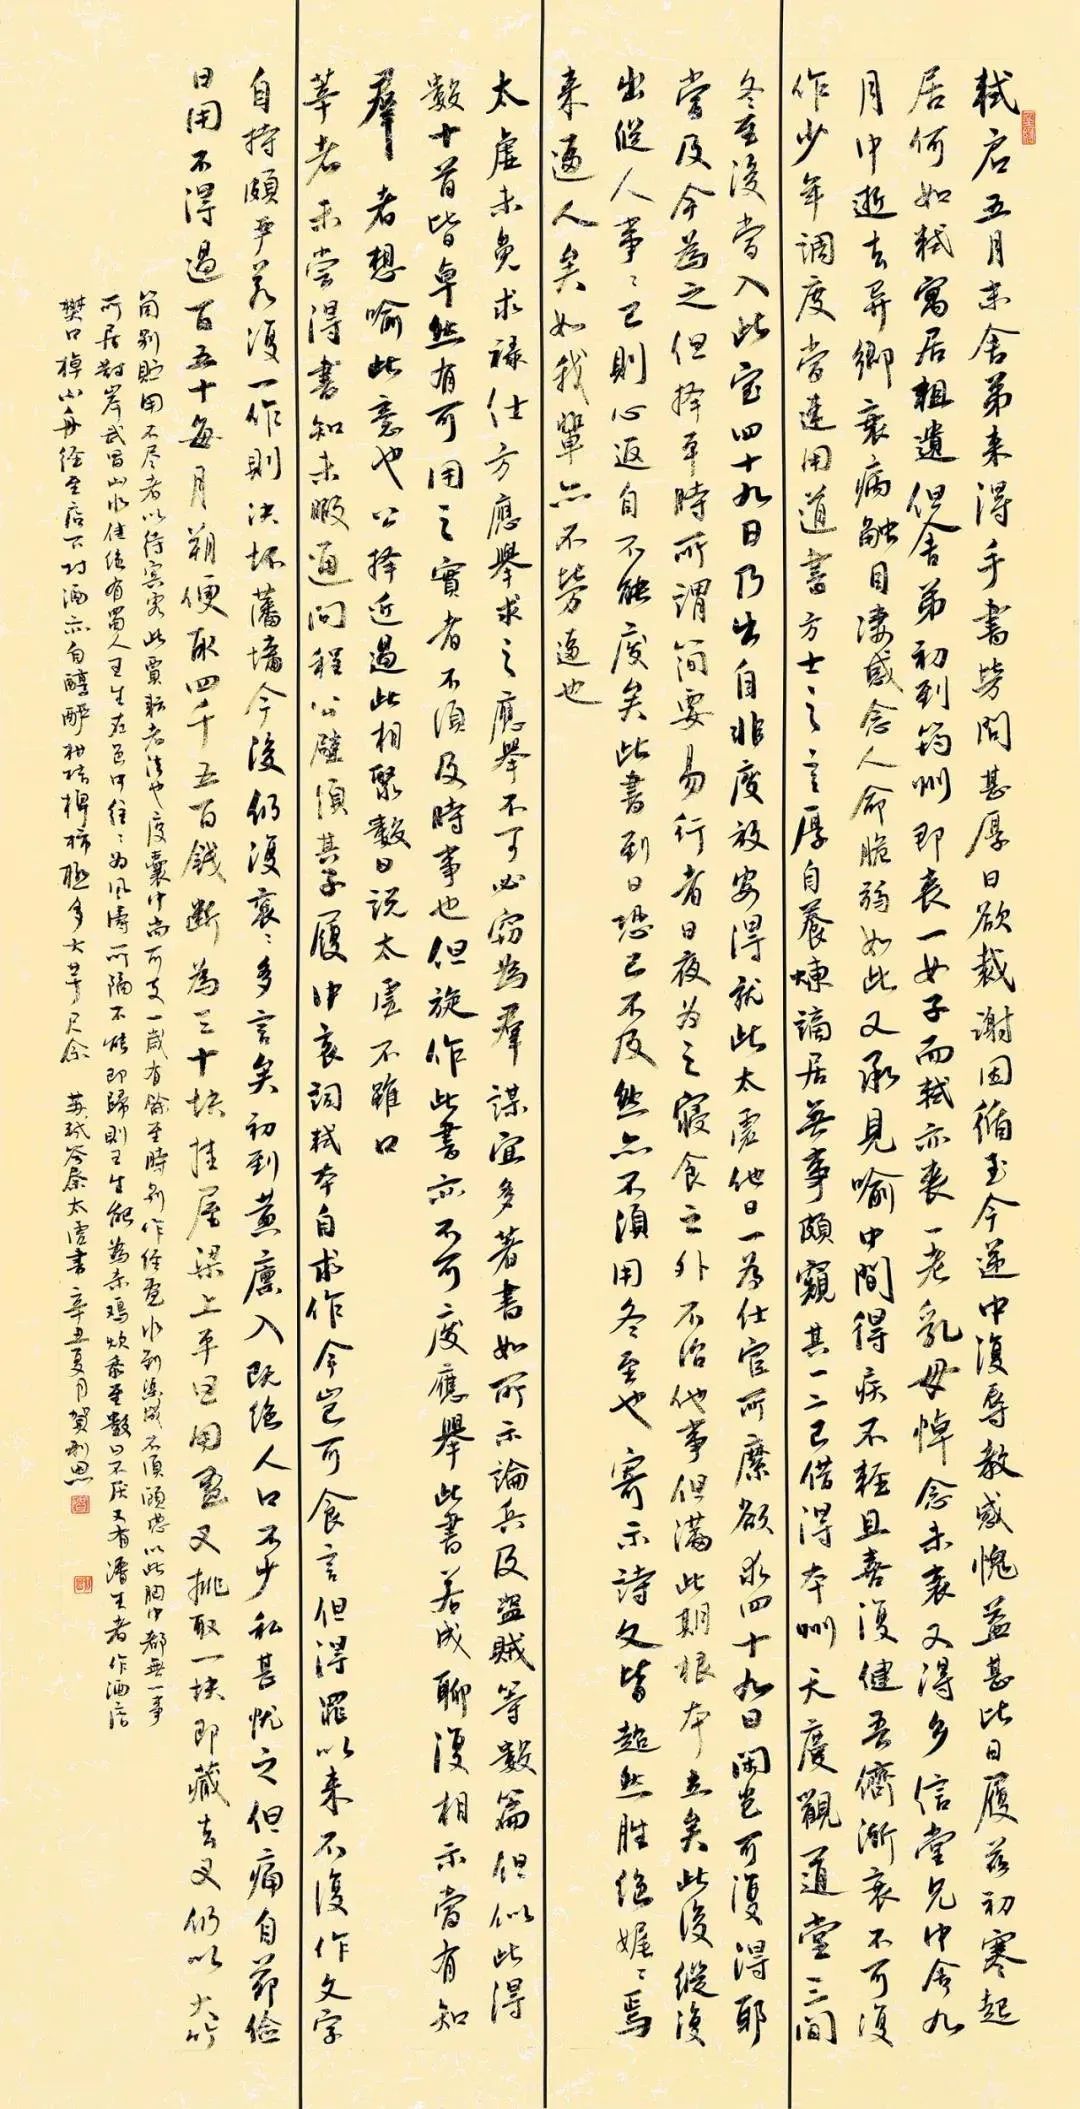 軾启五月末舍弟来得手書勞問甚厚日欲裁謝因循至今遞中復辱教感愧益甚比日履兹初寒起
居何如軾寓居粗遣但舍弟初到筠州即丧一女子而軾亦丧一老乳母悼念未衰又得乡信堂兄中舍九
月中逝去异鄉衰病触目凄感念人命脆弱如此又承見喻中間得疾不輕且喜復健吾儕漸衰不可復
作少年調度當速用道書方士之言厚自養煉謫居無事頗窺其一二已借得本州天慶觀道堂三間
冬至後當入此室四十九日乃出自非廢放安得就此太虛他日一为仕宦所縻欲求四十九日閑豈可復得耶
當及今為之但擇平時所谓简要易行者日夜为之寢食之外不治他事但滿此期根本立矣此後縱復
出從人事事已則心返自不能廢矣此書到日恐已不及然亦不須用冬至也 寄示詩文皆超然胜绝娓娓焉
来逼人矣如我輩亦不勞逼也
太虛未免求禄仕方應舉求之應舉不可必窃為君謀宜多著書如所示論兵及盜賊等數篇但似此得
數十首皆卓然有可用之實者不須及時事也但旋作此書亦不可廢應舉此書若成聊復相示當有知
君者想喻此意也公擇近過此相聚數日说太虛不離口
莘老未嘗得書知未暇通问程公辟須其子履中哀詞軾本自求作今岂可食言但得罪以来不復作文字
自持頗严若復一作則决坏藩墻今後仍復衮衮多言矣初到黄廪入既绝人口不少私甚忧之但痛自節儉
日用不得過百五十每月朔便取四千五百錢断為三十块挂屋梁上平旦用画叉挑取一块即藏去叉仍以大竹
筒别貯用不尽者以待宾客此賈耘老法也度囊中尚可支一歲有餘至時别作经画水到渠成不須顧慮以此胸中都無一事
所居對岸武昌山水佳绝有蜀人王生在邑中往往为风涛所隔不能即歸則王生能為杀鸡炊黍至數日不厌又有潘生者作酒店
樊口棹小舟径至店下村酒亦自醇酽柑橘椑柿極多大芋長尺余 苏軾答秦太虛書 辛丑夏月賀